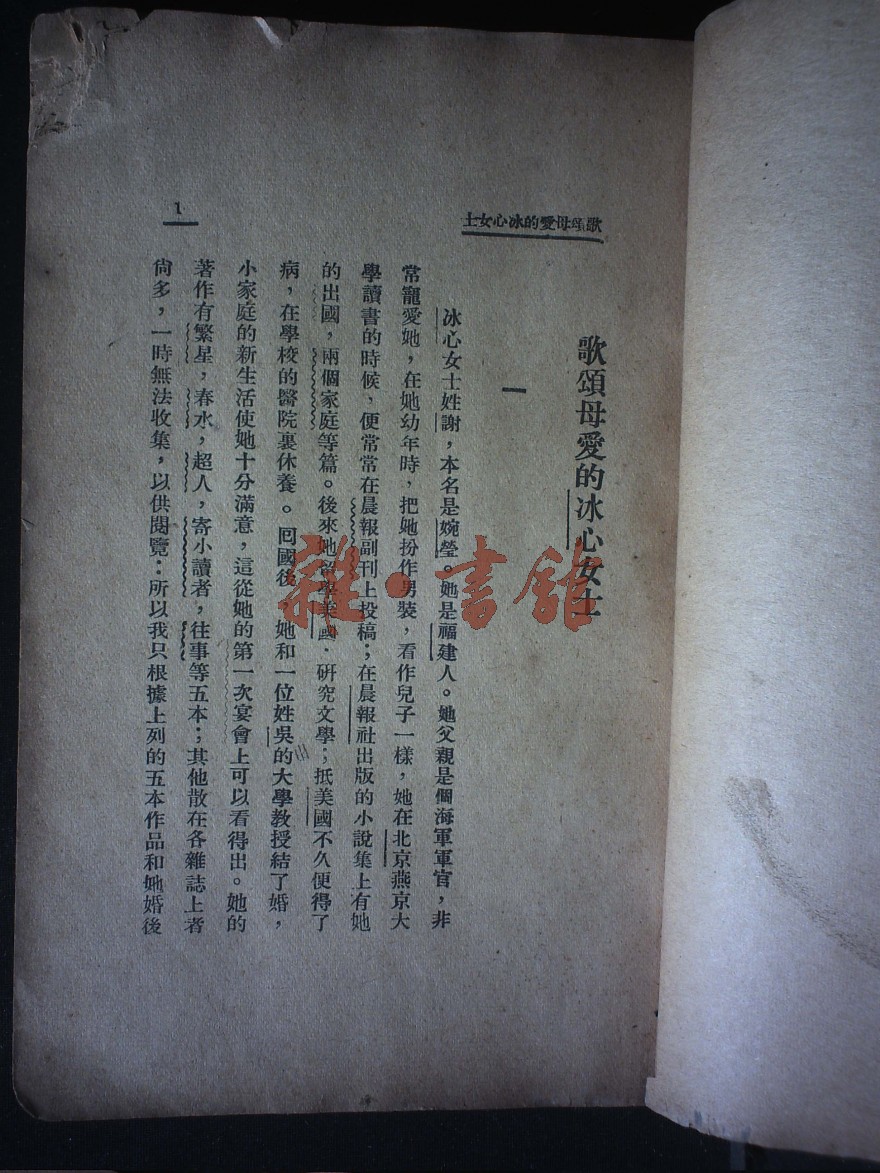 歌頌母愛的冰心女士
1
歌頌母愛的冰心女士
一
冰心女士姓謝，本名是婉瑩。她是福建人。她父親是個海軍軍官，非
常寵愛她，在她幼年時，把她扮作男裝，看作兒子一樣，她在北京燕京大
學讀書的時候，便常常在晨報副刊上投稿；在晨報社出版的小說集上有她
的出國，兩個家庭等篇。後來她留學美國．研究文學；抵美國不久便得了
病，在學校的醫院裏休養。回國後，她和一位姓吳的大學教授結了婚，
小家庭的新生活使她十分滿意，這從她的第一次宴會上可以看得出。她的
著作有繁星，春水，超人，寄小讀者，往事等五本；其他散在各雜誌上者
尙多，一時無法收集，以供閱覽：所以我只根據上列的五本作品和她婚後
雜·書館